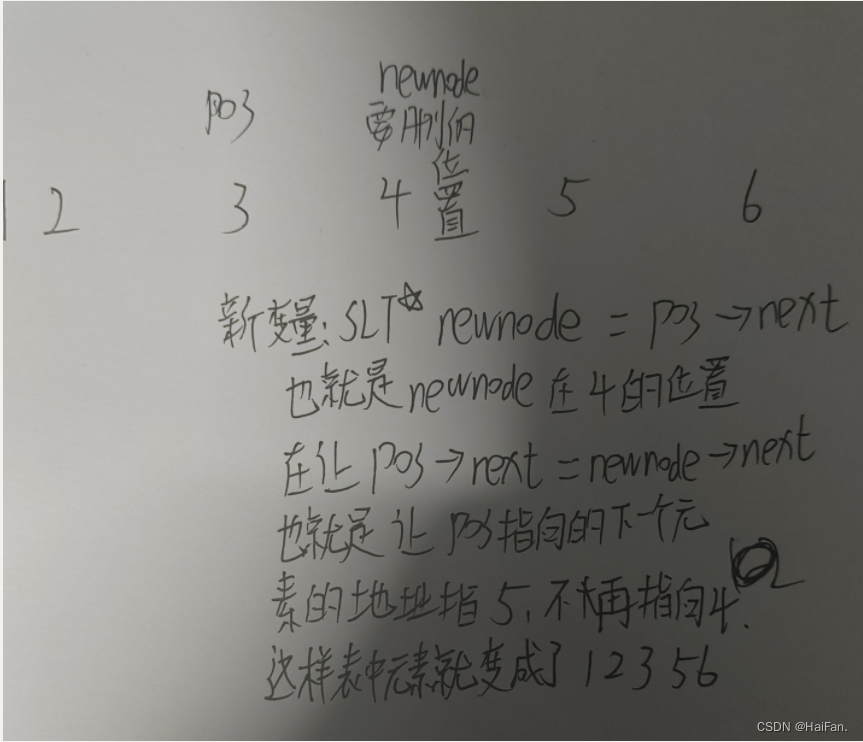 newnode
pos
要删的
位
置
1 2 3 4 5 6
新变量: SLT* newnode = pos→next
也就是newnode在4的位置
在让pos→next=newnode→next
也就是让pos指向的下一个元
素的地址指5,不再指向4.
这样表中元素就变成了12356
CSDN @HaiFan.